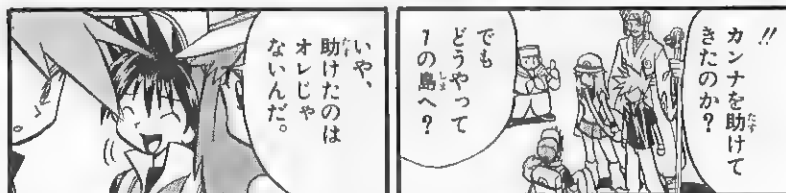 !!
カンナを助けて
きたのか？
でも
どうやって
1の島へ？
いや、
助けたのは
オレじゃ
ないんだ。